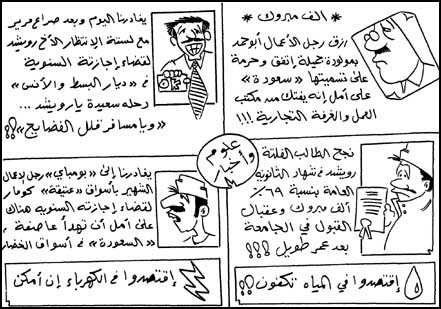 * ألف مبروك *
رزق رجل الأعمال أبو حمد
بمولودة جميلة إتفق وحرمه
على تسميتها «سعودة»
على أمل إنه يفتك من مكتب
العمل والغرفة التجارية !!!
يغادرنا اليوم وبعد صراع مرير
مع لستة الإنتظار الأخ رويشد
لقضاء إجازته السنوية
في «ديار البسط والأنس»
رحلة سعيدة يا رويشد ...
«ويا مسافر قلل الفضايح» ؟؟
علوم
وأخبار
نجح الطالب الفلتة
رويشد في شهادة الثانوية
العامة بنسبة ٦٩٪
ألف مبروك وعقبال
القبول في الجامعة
بعد عمر طويل ؟؟؟
يغادرنا إلى «بومباي» رجل الأعمال
الشهير بأسواق «عتيقة» كومار
لقضاء إجازته السنوية هناك
على أمل أن تهدأ عاصفة
«السعودة» في أسواق الخضار
إقتصدوا في المياه تكفون ؟؟
إقتصدوا في الكهرباء إن أمكن